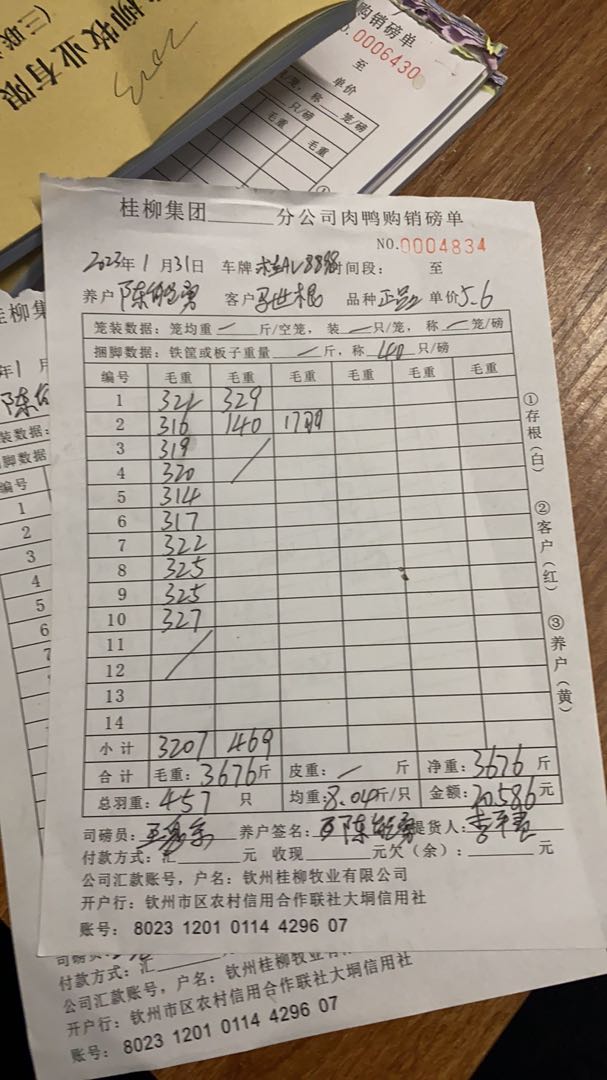 柳牧业有限
（三联
购销磅单
NO.0006430
至
单价
笼，称 笼/磅
只/磅
毛重 毛重
桂柳集团 分公司肉鸭购销磅单
NO.0004834
2023年1月31日 车牌 时间段： 至
养户 客户 品种 正品 单价5.6
笼装数据：笼均重 / 斤/空笼，装 / 只/笼，称 / 笼/磅
捆脚数据：铁筐或板子重量 / 斤，称 140 只/磅
编号 毛重 毛重 毛重 毛重 毛重 毛重
1 321 329
2 316 140 17只
3 319
4 320
5 314
6 317
7 322
8 325
9 325
10 327
11
12
13
14
小计 3207 469
合计 毛重：3676斤 皮重：/ 斤 净重：3676斤
总羽重：457 只 均重：8.04斤/只 金额：20586元
司磅员： 养户签名： 提货人：
付款方式：汇 元 收现 元欠（余）： 元
公司汇款账号，户名：钦州桂柳牧业有限公司
开户行：钦州市区农村信用合作联社大垌信用社
账号：8023 1201 0114 4296 07
①存根（白）
②客户（红）
③养户（黄）
桂柳集
年1月
装数据：
脚数据
编号
1
2
3
4
5
6
7
8
司磅员
付款方式：汇
公司汇款账号，户名：钦州桂柳牧业有限
开户行：钦州市区农村信用合作联社大垌信用社
账号：8023 1201 0114 4296 07